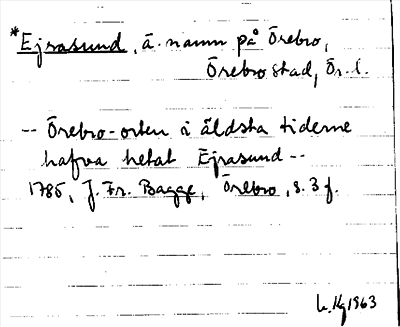 *Ejrasund, ä. namn på Örebro,
Örebro stad, Ör. l.
-- Örebro-orten i äldsta tiderne
hafva hetat Ejrasund --
1785, J. Fr. Bagge, Örebro, s. 3 f.
L. Hg 1963